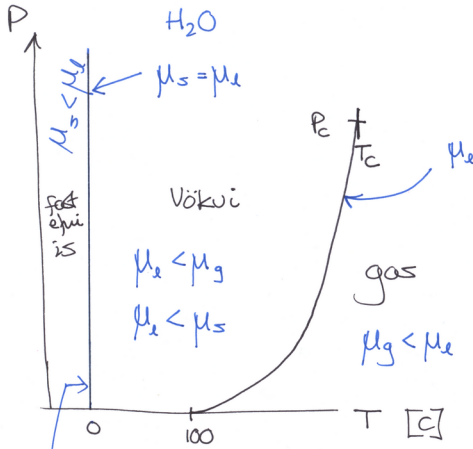 P
H₂O
μs < μl
μs = μl
Pc
Tc
μl
fast
efni
ís
Vökvi
μl < μg
μl < μs
gas
μg < μl
0
100
T [C]